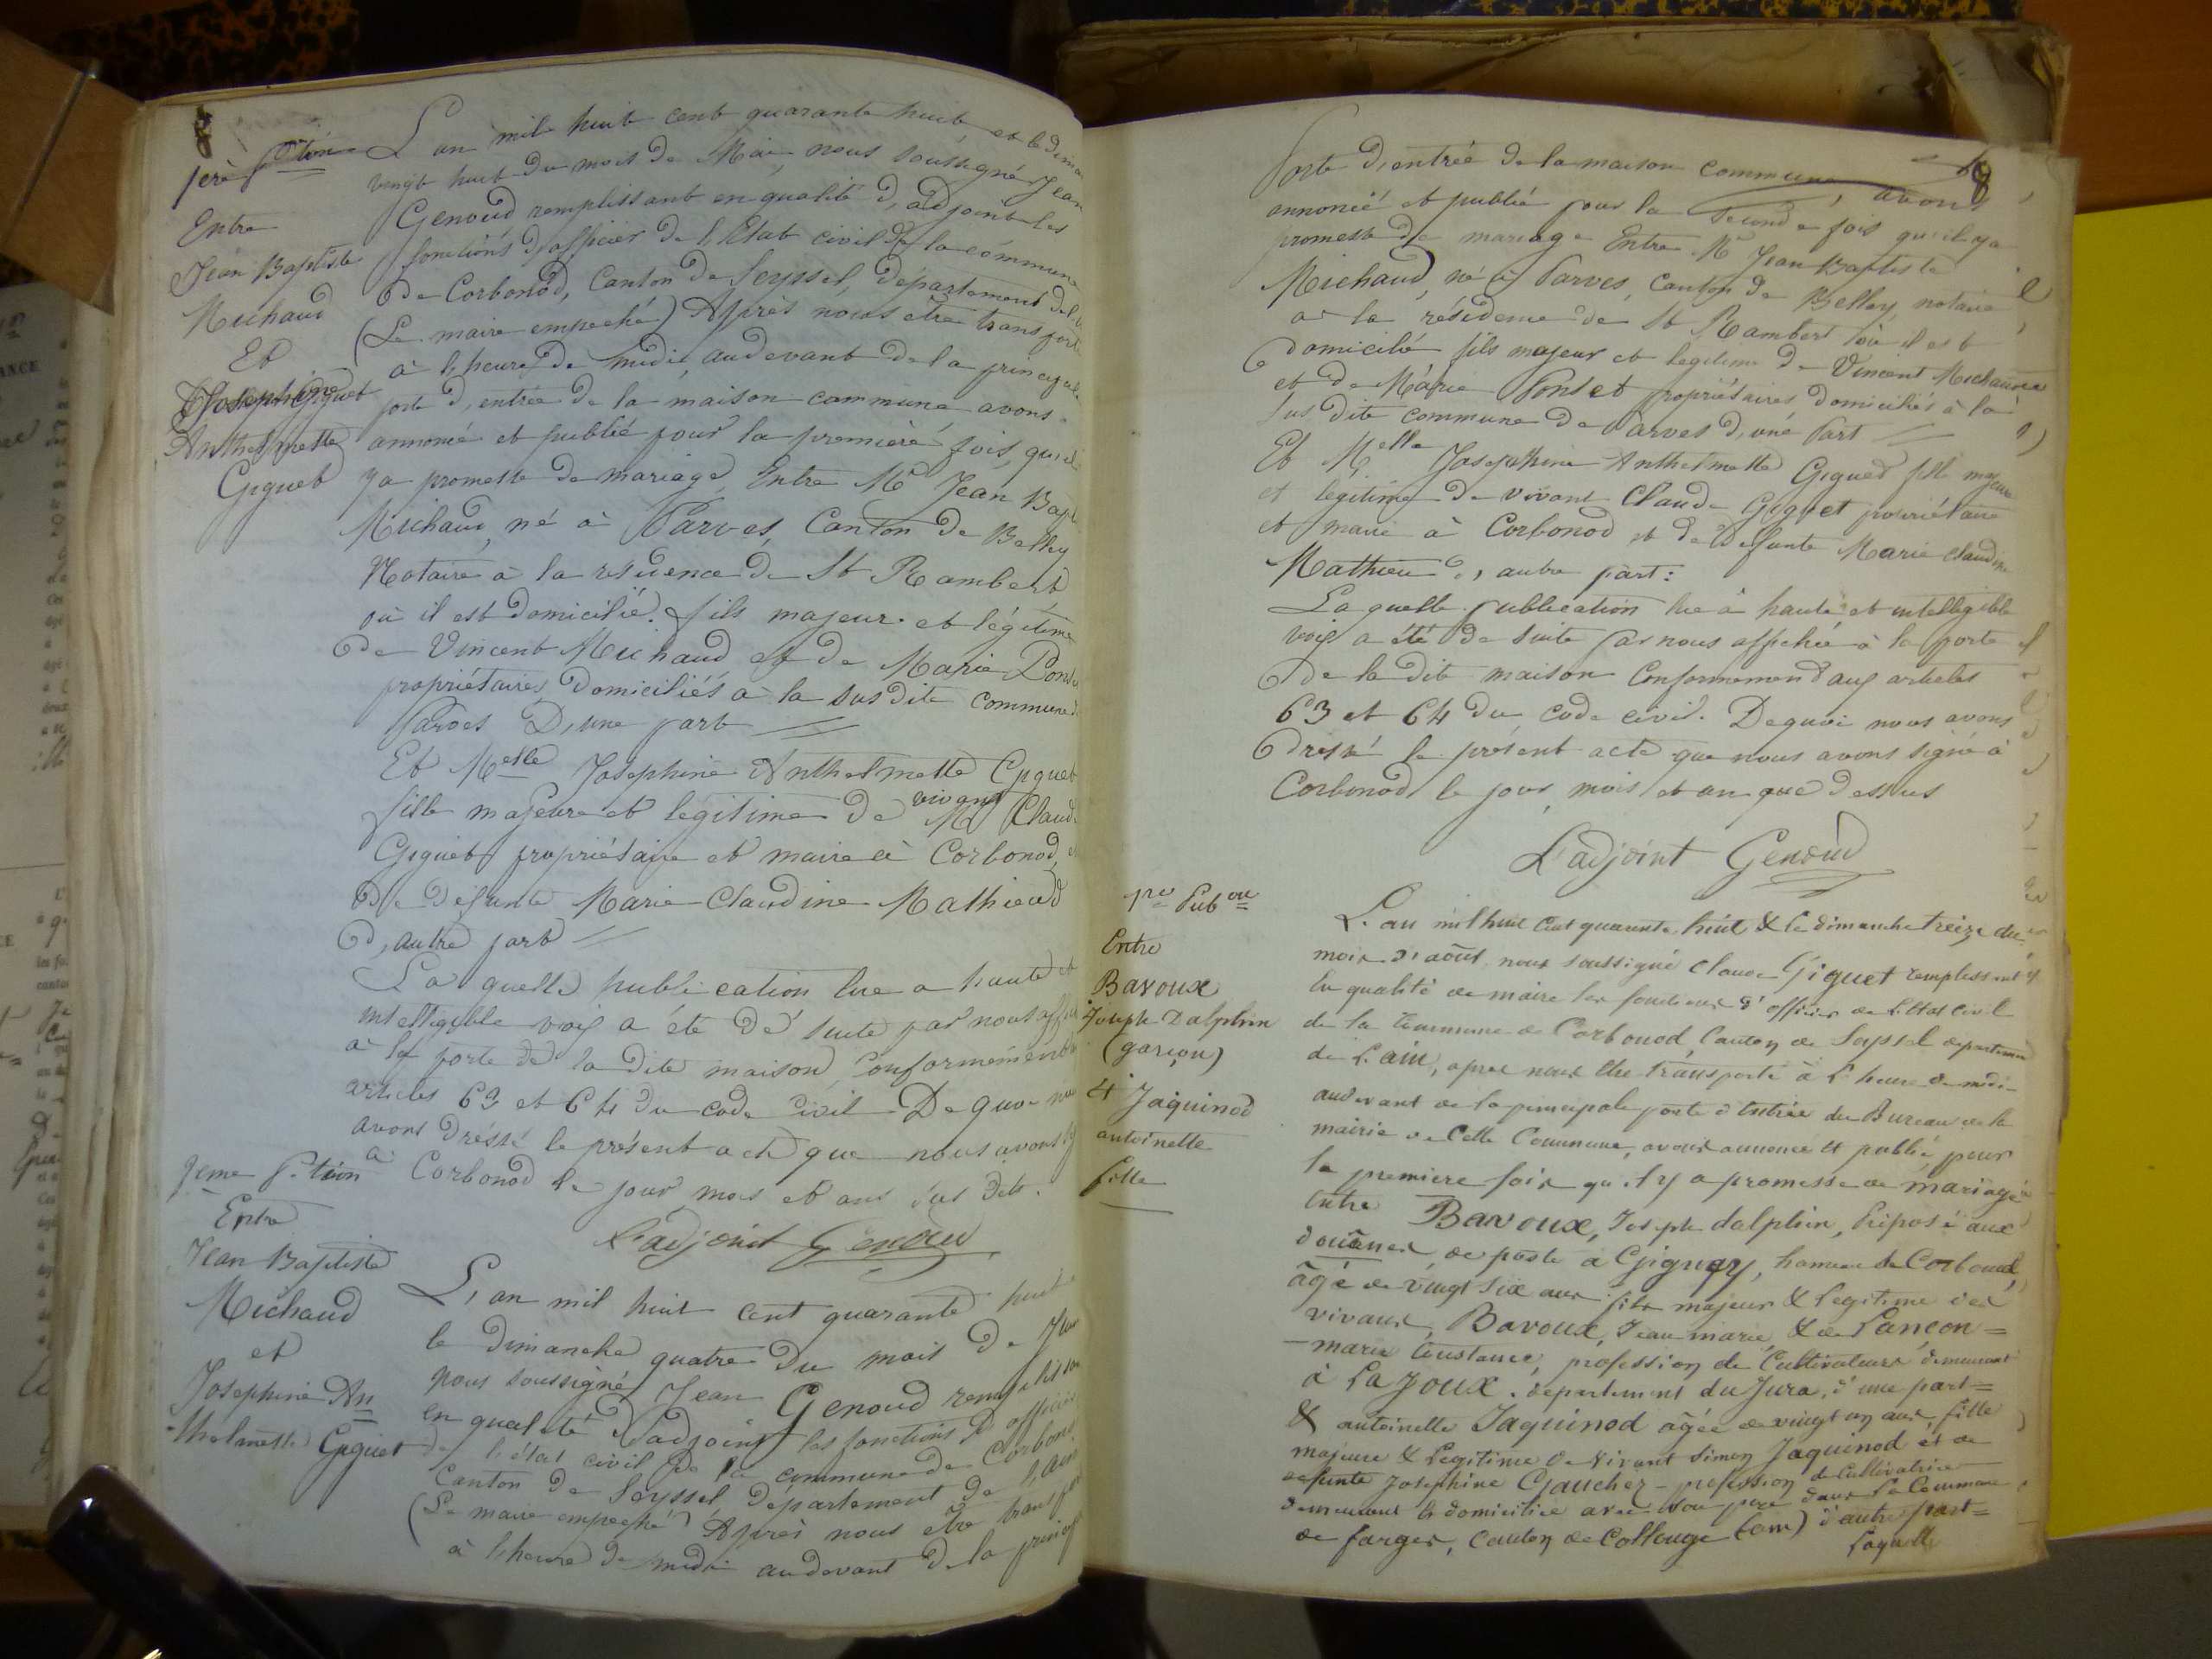 8
1ère p.tion
Entre
Jean Baptiste
Michaud
Et
Josephine
Anthelmette
Giguet
L'an mil huit cent quarante huit, et le diman
vingt huit du mois de Mai, nous soussigné Jean
Genoud remplissant en qualité d'adjoint les
fonctions d'officier de l'Etat civil de la commune
de Corbonod, Canton de Seyssel, département de l'
(Le maire empeché) Après nous être transporté
à l'heure de midi, audevant de la principale
porte d'entrée de la maison commune avons
annoncé et publié pour la première fois, qu'il
ya promesse de mariage Entre Mr Jean Bapt
Michaud, né à Parves, Canton de Belley
Notaire à la residence de St Rambert
où il est domicilié. fils majeur et légitime
de Vincent Michaud et de Marie Ponse
propriétaires domiciliés à la susdite commune de
Parves D'une part
Et Melle Josephine Anthelmette Giguet
fille majeure et legitime de vivant Mr Claude
Giguet propriétaire et maire à Corbonod, et
De defunte Marie Claudine Mathieud
D'autre part
La quelle publication lue a haute et
intelligible voix a été de suite par nous affich
à la porte de la dite maison Conformement
articles 63 et 64 du code civil. De quoi nou
avons dressé le présent acte que nous avons sig
à Corbonod le jour, mois et ans sus dits.
L'adjoint Genoud
2eme p.tion
Entre
Jean Baptiste
Michaud
et
Josephine An
thelmette Giguet
L'an mil huit cent quarante huit
le dimanche quatre du mois de Juin
nous soussigné Jean Genoud remplissan
en qualité d'adjoint les fonctions d'officier
de l'état civil de la commune de Corbono
Canton de Seyssel, département de l'ain
(Le maire empeché) Après nous être transpor
à l'heure de midi audevant de la princip
8
Porte d'entrée de la maison commune, avons
annoncé et publié pour la seconde fois qu'il ya
promesse de mariage Entre Mr Jean Baptiste
Michaud, né à Parves, Canton de Belley, notaire
à la résidence de St Rambert où il est
domicilié fils majeur et legitime de Vincent Michaud
et de Marie Ponset propriétaires domiciliés à la
sus dite commune de Parves d'une Part
Et Melle Josephine Anthelmette Giguet fill majeure
et légitime de vivant Claude Giguet propriétaire
et maire à Corbonod et de defunte Marie Claudine
Mathieu d'autre part:
La quelle publication lue à haute et intelligible
voix a été de suite par nous affichée à la porte
de la dite maison Conformement aux articles
63 et 64 du code civil. Dequoi nous avons
dressé le présent acte que nous avons signé à
Corbonod le jour, mois et an que dessus
L'adjoint Genoud
1re Pubon
Entre
Bavoux
Joseph Dalphin
(garçon)
et Jaquinod
antoinette
fille
L'an mil huit cent quarante huit & le dimanche treize du
mois d'août nous soussigné Claude Giguet remplissant
En qualité de maire les fonctions d'officier de l'Etat civil
de la Commune de Corbonod, Canton de Seyssel departement
de l'ain, après nous être transporté à l'heure de midi
audevant de la principale porte d'entrée du Bureau de la
mairie de Cette Commune, avons annoncé et publié pour
la premiere fois qu'il y a promesse de mariage
Entre Bavoux, Joseph dalphin, Préposé aux
douânes de poste à Gignez, hameau de Corbonod,
âgé de vingt six ans fils majeur & legitime des
vivans Bavoux, Jean marie, & de Lançon=
-marie Constance, profession de Cultivateurs demeurant
à La Joux, departement du Jura, d'une part=
& antoinette Jaquinod âgée de vingt un ans, fille
majeure & Legitime de vivant Simon Jaquinod et de
defunte Josephine Gaucher - profession de Cultivatrice
demeurant & domiciliée avec son père dans la Commune
de farges, Canton de Collonge (ain) d'autre part=
Laquelle